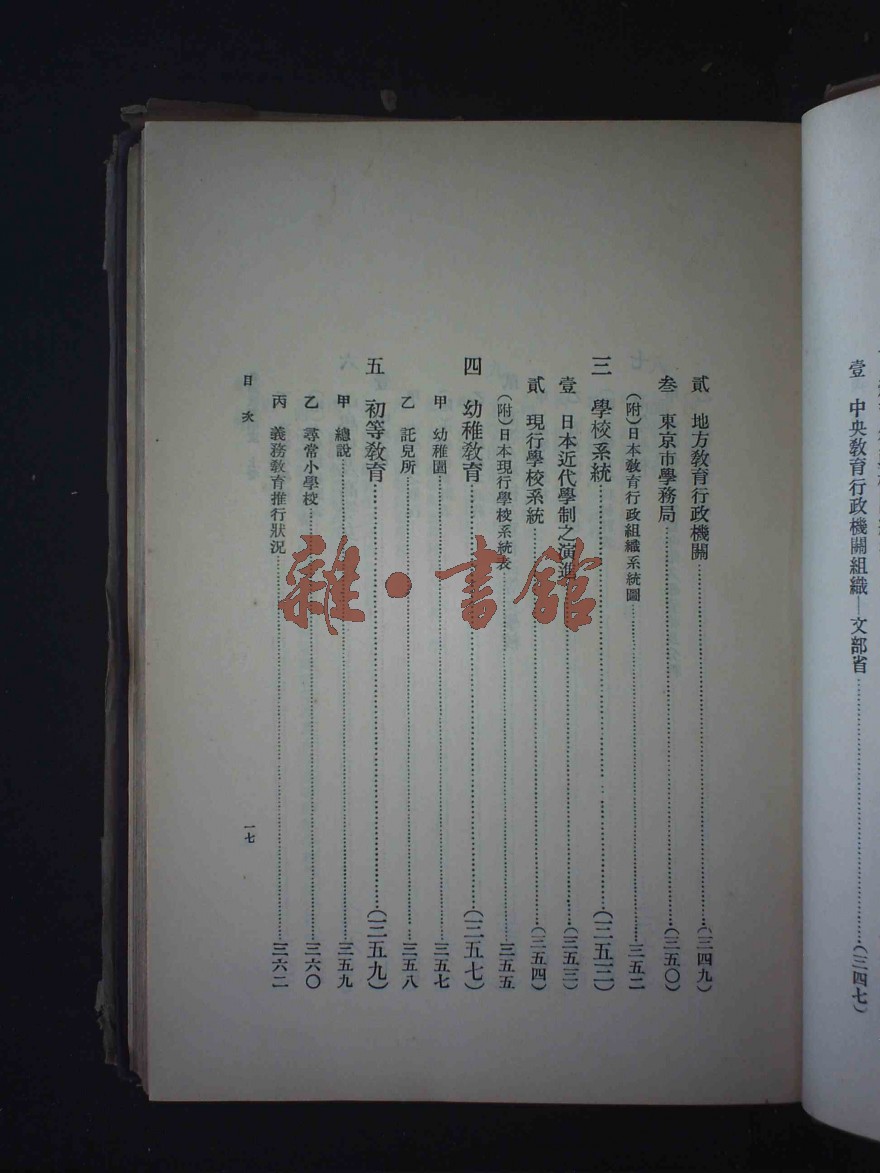 壹 中央教育行政機關組織—文部省……(三四七)
貳 地方教育行政機關……(三四九)
叁 東京市學務局……(三五〇)
(附)日本教育行政組織系統圖……三五二
三 學校系統……(三五三)
壹 日本近代學制之演進……(三五三)
貳 現行學校系統……(三五四)
(附)日本現行學校系統表……三五五
四 幼稚教育……(三五七)
甲 幼稚園……三五七
乙 託兒所……三五八
五 初等教育……(三五九)
甲 總說……三五九
乙 尋常小學校……三六〇
丙 義務教育推行狀況……三六二
目次 一七
雜·書館